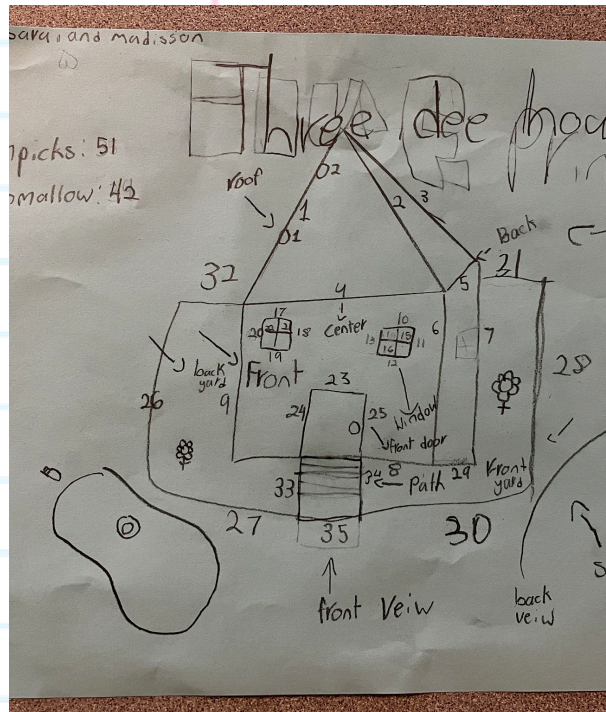 sara, and madisson
Three dee hou
picks: 51
mallow: 42
roof
Back
02
1
2
3
01
32
4
5
21
center
17
20
18
19
10
13
11
16
15
12
6
7
Front
back
yard
9
26
23
24
25
O
Window
front door
28
33
34
8
Path
29
Front
yard
27
35
30
front Veiw
back
veiw